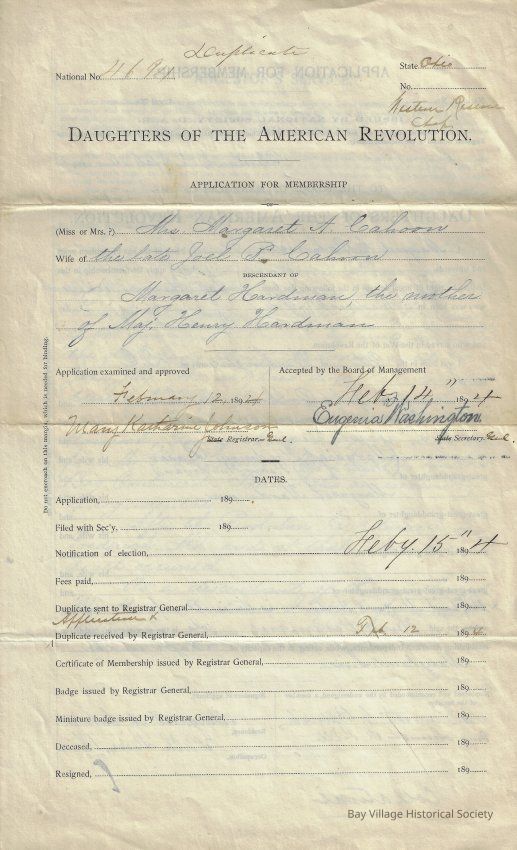 Duplicate
National No. State Ohio
No.
Western Reserve
Chap
DAUGHTERS OF THE AMERICAN REVOLUTION.
APPLICATION FOR MEMBERSHIP
OF
(Miss or Mrs.?) Mrs. Margaret A. Cahoon
Wife of the late Joel B. Cahoon
DESCENDANT OF
Margaret Hardman, the mother
of Maj. Henry Hardman
Application examined and approved Accepted by the Board of Management
February 12, 1894 Feby 14" 1894
Mary Katharine Johnson Eugenia Washington.
State Registrar Genl. State Secretary Genl.
Do not encroach on this margin, which is needed for binding.
DATES.
Application, 189
Filed with Sec'y. 189
Notification of election, Feby. 15" 1894
Fees paid, 189
Duplicate sent to Registrar General 189
Application &
Duplicate received by Registrar General, Feb 12 1894
Certificate of Membership issued by Registrar General, 189
Badge issued by Registrar General, 189
Miniature badge issued by Registrar General, 189
Deceased, 189
Resigned, 189
Bay Village Historical Society